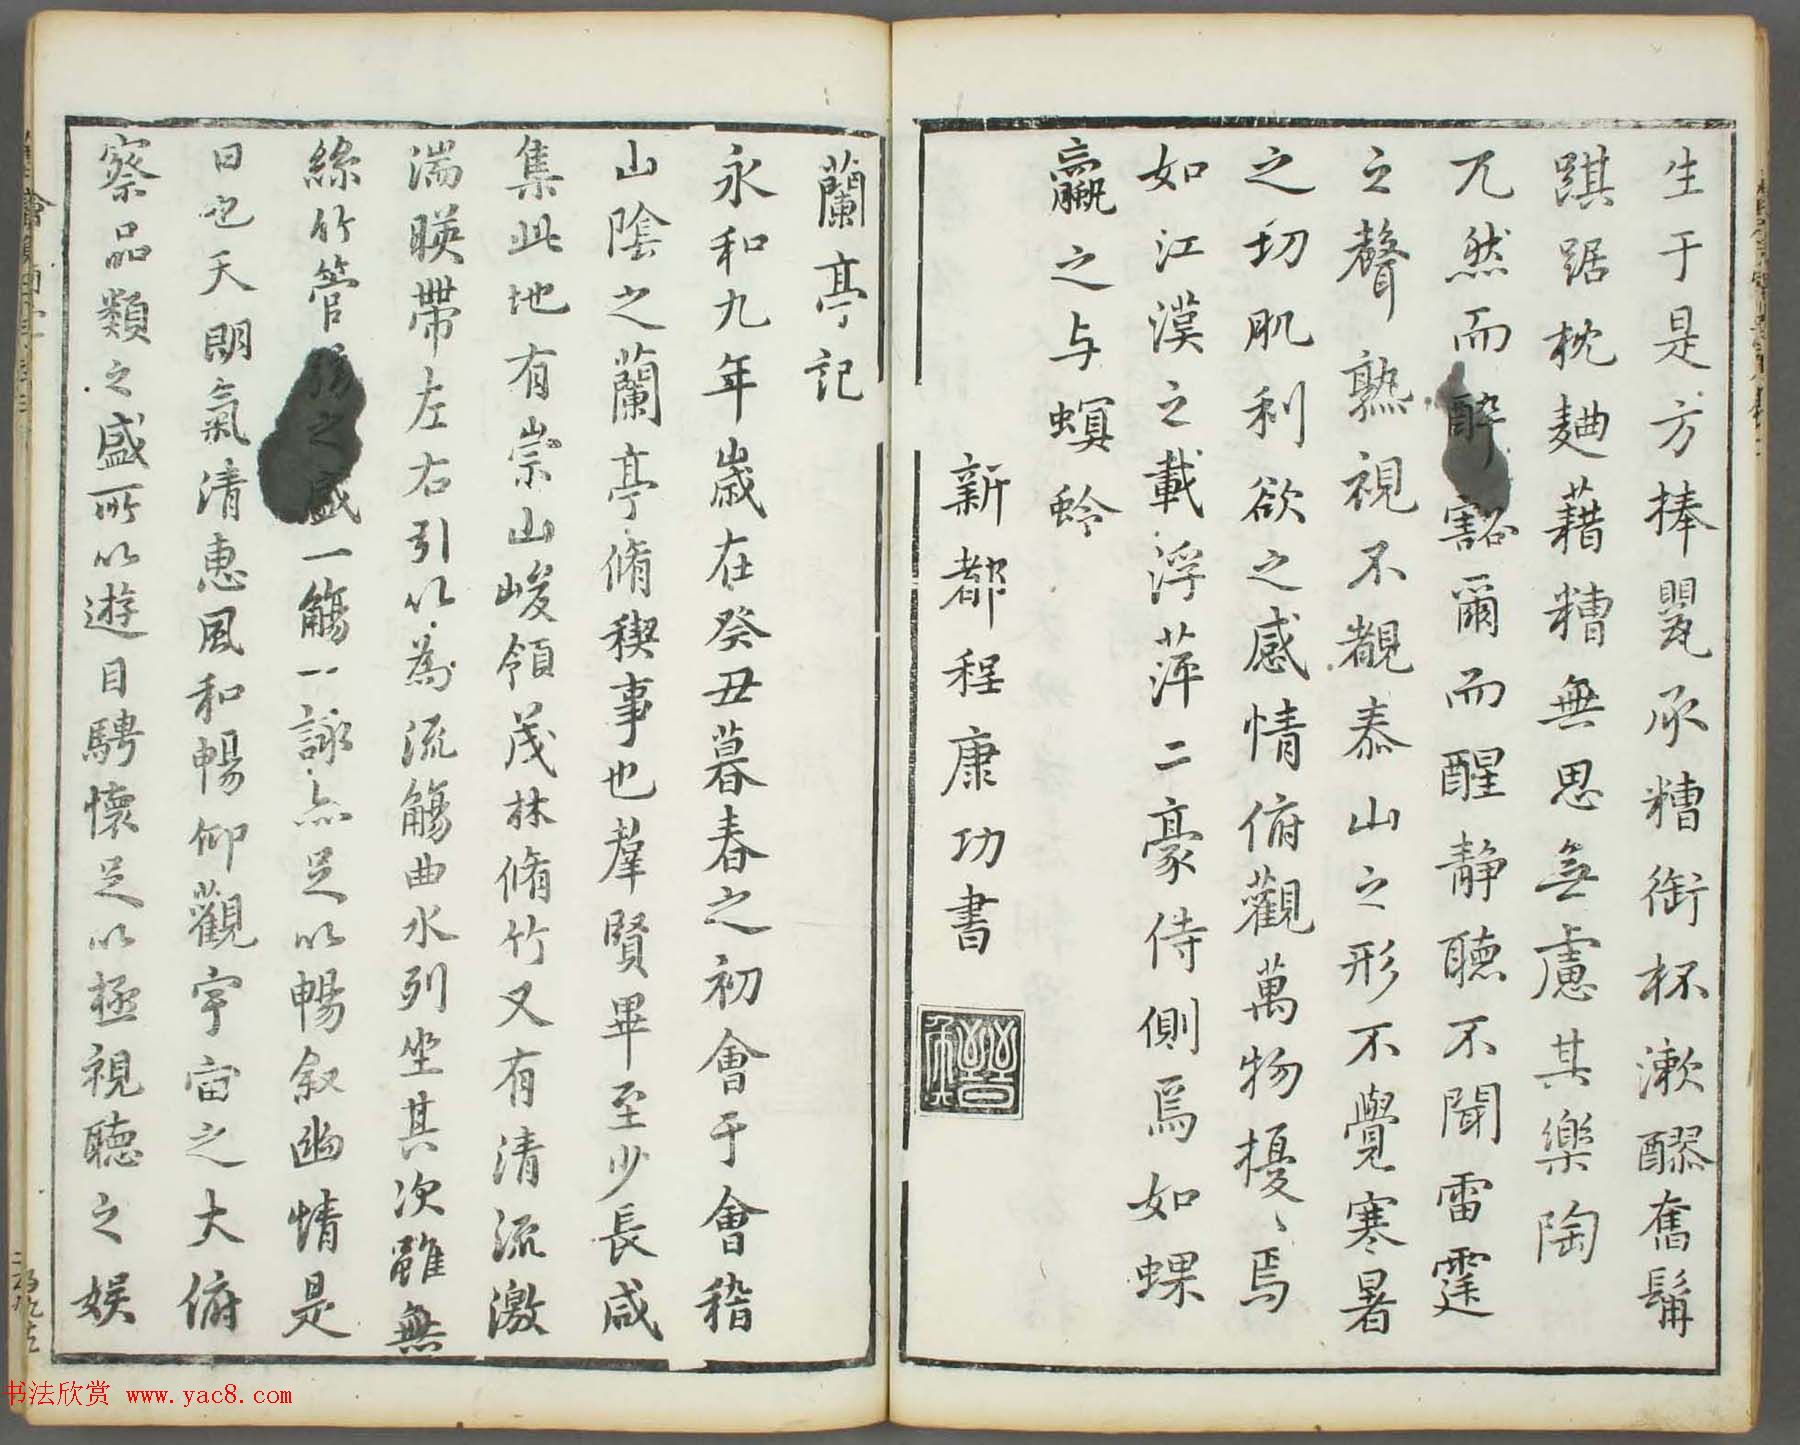 生于是方捧罌承糟銜杯漱醪奮髯
踑踞枕麯藉糟無思無慮其樂陶
兀然而醉豁爾而醒静聽不聞雷霆
之聲熟視不覩泰山之形不覺寒暑
之切肌利欲之感情俯觀萬物擾〻焉
如江漢之載浮萍二豪侍側焉如蜾
蠃之与螟蛉
新都程康功書
蘭亭記
永和九年歲在癸丑暮春之初會于會稽
山陰之蘭亭脩稧事也羣賢畢至少長咸
集此地有崇山峻領茂林脩竹又有清流激
湍暎帶左右引以為流觴曲水列坐其次雖無
絲竹管之盛一觴一詠亦足以暢叙幽情是
日也天朗氣清惠風和暢仰觀宇宙之大俯
察品類之盛所以遊目騁懷足以極視聽之娱
书法欣赏 www.yac8.com